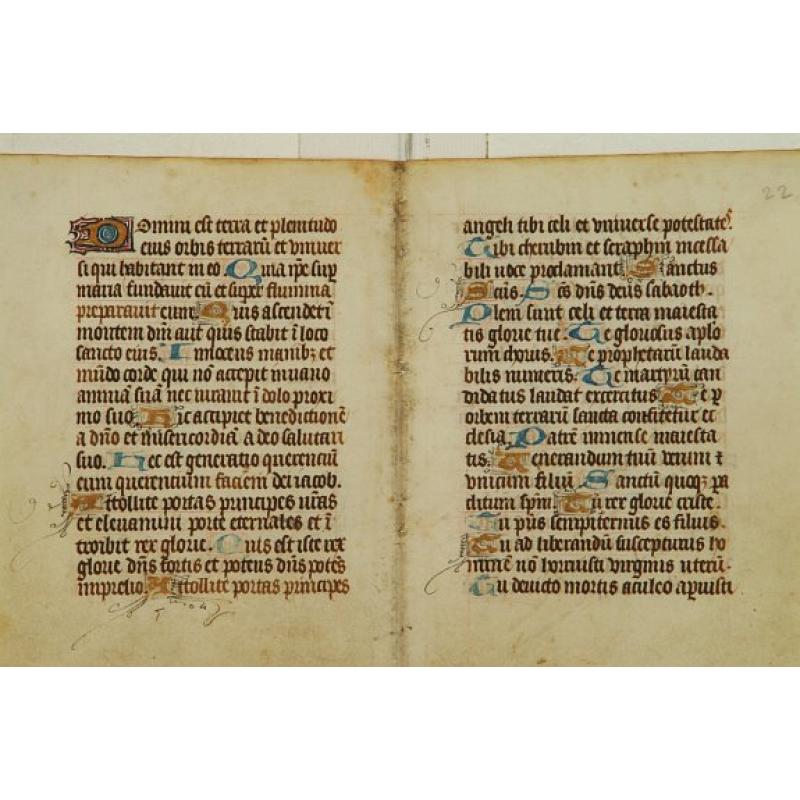 Domini est terra et plenitudo
eius orbis terrarū et vniuer
si qui habitant in eo. Quia ip̄e sup̄
maria fundauit eū et super flumina
preparauit eum. Quis ascendet ī
montem dn̄i aut quis stabit ī loco
sancto eius. Innocens manibꝫ et
mūdo corde qui nō accepit inuano
animā suā nec iurauit ī dolo proxi
mo suo. Hic accipiet benedictionē
a dn̄o et misericordiā a deo salutari
suo. Hec est generatio querenciū
eum querencium faciem dei iacob.
Attollite portas principes vr̄as
et eleuamini porte eternales et ī
troibit rex glorie. Quis est iste rex
glorie dn̄s fortis et potens dn̄s potēs
inprelio. Attollite portas principes
22
angeli tibi celi et vniuerse potestates.
Tibi cherubin et seraphin incessa
bili uoce proclamant. Sanctus
Sc̄us. Sc̄s dn̄s deus sabaoth.
Pleni sunt celi et terra maiesta
tis glorie tue. Te gloriosus aplo
rum chorus. Te prophetarū lauda
bilis numerus. Te martyrū can
didatus laudat excercitus. Te p̄
orbem terrarū sancta confitetur ec
clesia. Patrē inmense maiesta
tis. Venerandum tuū verum ⁊
vnicum filiū. Sanctū quoqꝫ pa
clitum sp̄m. Tu rex glorie criste.
Tu pr̄is sempiternus es filius.
Tu ad liberandū suscepturus ho
minē nō horruisti virginis uterū.
Tu deuicto mortis aculeo aperuisti